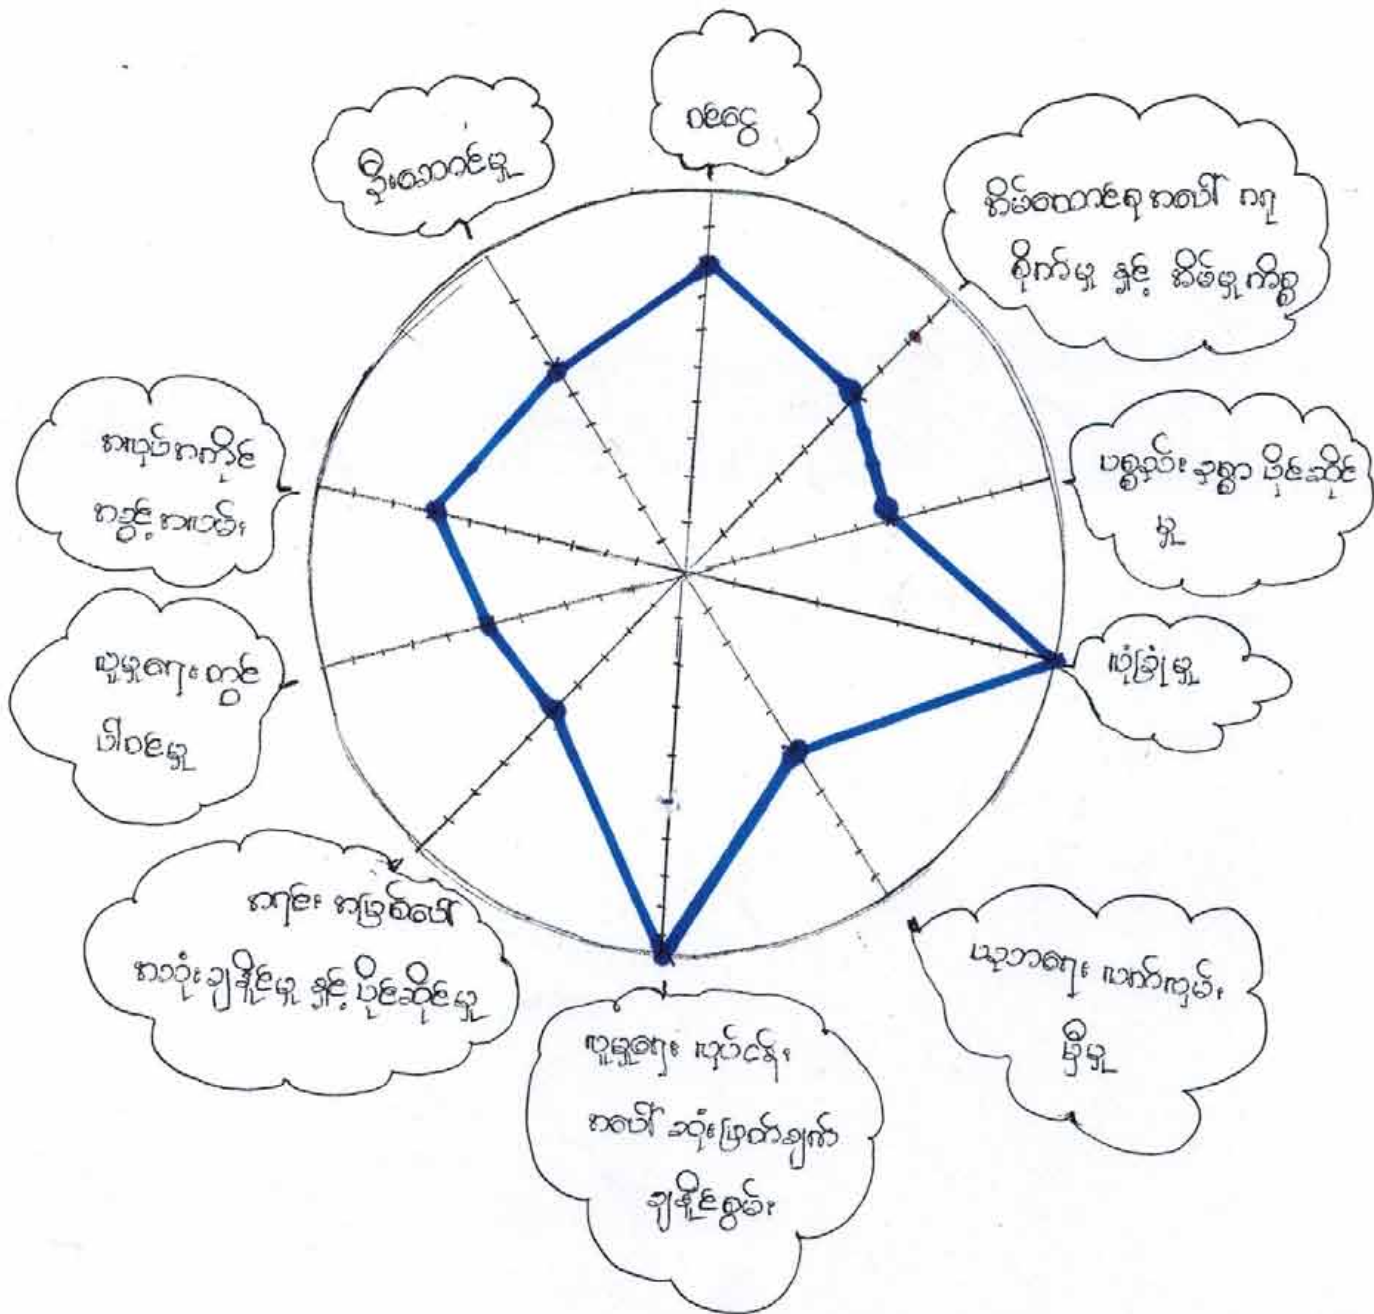 ဝင်ငွေ
အိမ်ထောင်ရေးအပေါ် ဂရု
စိုက်မှု နှင့် အိမ်မှုကိစ္စ
ပစ္စည်း ဥစ္စာ ပိုင်ဆိုင်
မှု
လုံခြုံမှု
ပညာရေး လက်လှမ်း
မှီမှု
လူမှုရေး လုပ်ငန်း
အပေါ် ဆုံးဖြတ်ချက်
ချနိုင်စွမ်း
အရင်း အမြစ်ပေါ်
အသုံးချနိုင်မှု နှင့် ပိုင်ဆိုင်မှု
လူမှုရေး တွင်
ပါဝင်မှု
အလုပ်အကိုင်
အခွင့်အလမ်း
ဦးဆောင်မှု